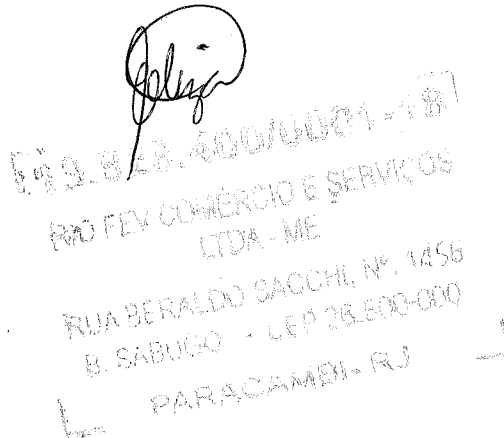 RIO FEV COMÉRCIO E SERVIÇOS
LTDA - ME
RUA BERALDO SACCHI, Nº. 1456
B. SABUGO - CEP 26.600-000
PARACAMBI - RJ